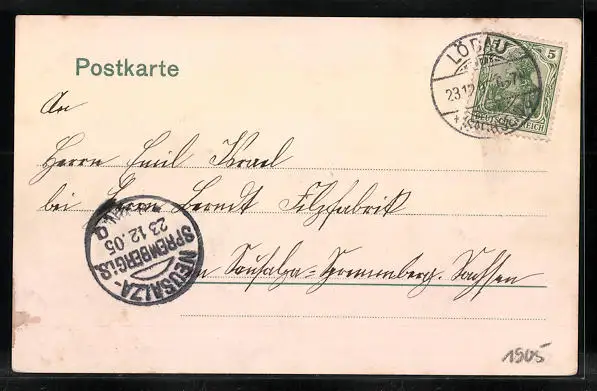 Postkarte
LÖBAU
23.12.
5
DEUTSCHES REICH
An
Herrn Emil Israel
bei Herrn Berndt Filzfabrik
in Neusalza-Spremberg. Sachsen
NEUSALZA-
SPREMBERG
23.12.05
1905